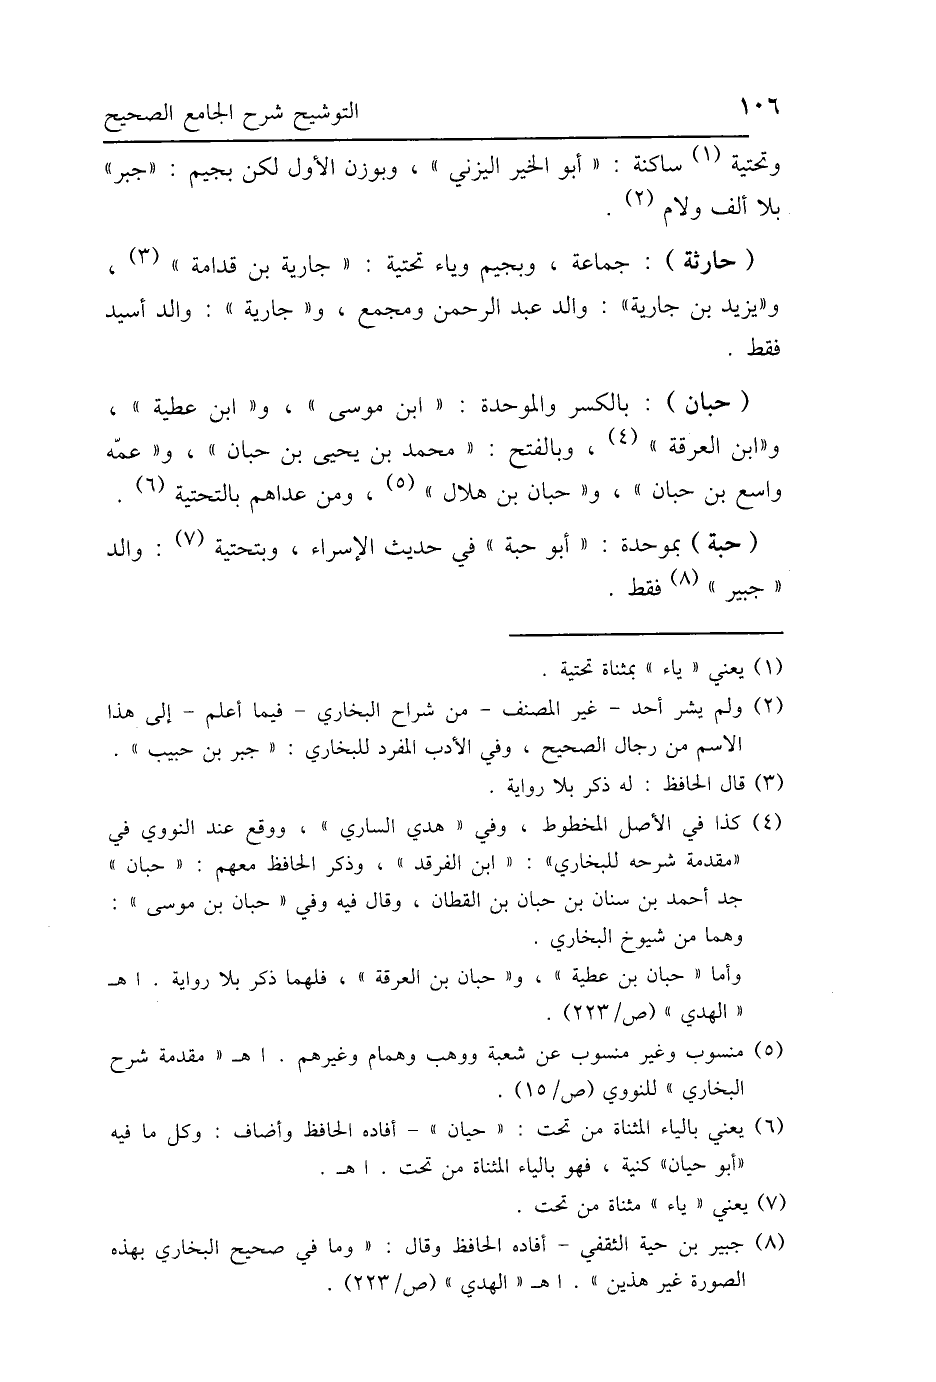 ١٠٦ التوشيح شرح الجامع الصحيح
وتحتية (١) ساكنة : « أبو الخير اليزني » ، وبوزن الأول لكن بجيم : «جبر»
بلا ألف ولام (٢) .
( حارثة ) : جماعة ، وبجيم وياء تحتية : « جارية بن قدامة » (٣) ،
و«يزيد بن جارية» : والد عبد الرحمن ومجمع ، و« جارية » : والد أسيد
فقط .
( حبان ) : بالكسر والموحدة : « ابن موسى » ، و« ابن عطية » ،
و«ابن العرقة » (٤) ، وبالفتح : « محمد بن يحيى بن حبان » ، و« عمّه
واسع بن حبان » ، و« حبان بن هلال » (٥) ، ومن عداهم بالتحتية (٦) .
( حبة ) بموحدة : « أبو حبة » في حديث الإسراء ، وبتحتية (٧) : والد
« جبير » (٨) فقط .
(١) يعني « ياء » بمثناة تحتية .
(٢) ولم يشر أحد - غير المصنف - من شراح البخاري - فيما أعلم - إلى هذا
الاسم من رجال الصحيح ، وفي الأدب المفرد للبخاري : « جبر بن حبيب » .
(٣) قال الحافظ : له ذكر بلا رواية .
(٤) كذا في الأصل المخطوط ، وفي « هدي الساري » ، ووقع عند النووي في
«مقدمة شرحه للبخاري» : « ابن الفرقد » ، وذكر الحافظ معهم : « حبان »
جد أحمد بن سنان بن حبان بن القطان ، وقال فيه وفي « حبان بن موسى » :
وهما من شيوخ البخاري .
وأما « حبان بن عطية » ، و« حبان بن العرقة » ، فلهما ذكر بلا رواية . ا هـ
« الهدي » (ص/٢٢٣) .
(٥) منسوب وغير منسوب عن شعبة ووهب وهمام وغيرهم . ا هـ « مقدمة شرح
البخاري » للنووي (ص/١٥) .
(٦) يعني بالياء المثناة من تحت : « حيان » - أفاده الحافظ وأضاف : وكل ما فيه
«أبو حيان» كنية ، فهو بالياء المثناة من تحت . ا هـ .
(٧) يعني « ياء » مثناة من تحت .
(٨) جبير بن حية الثقفي - أفاده الحافظ وقال : « وما في صحيح البخاري بهذه
الصورة غير هذين » . ا هـ « الهدي » (ص/٢٢٣) .